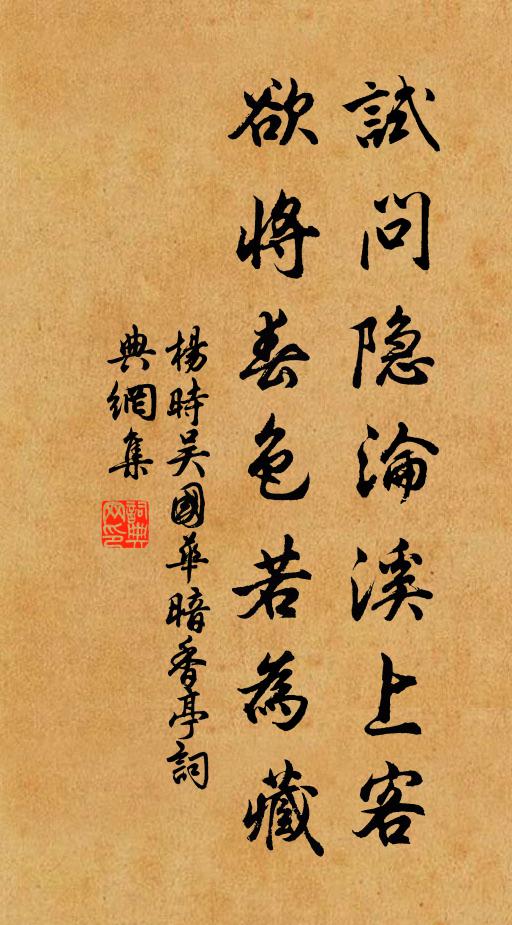 試問隐淪溪上客
欲將春色若為藏
楊時吴國華暗香亭詞
典網集
詞典
网印